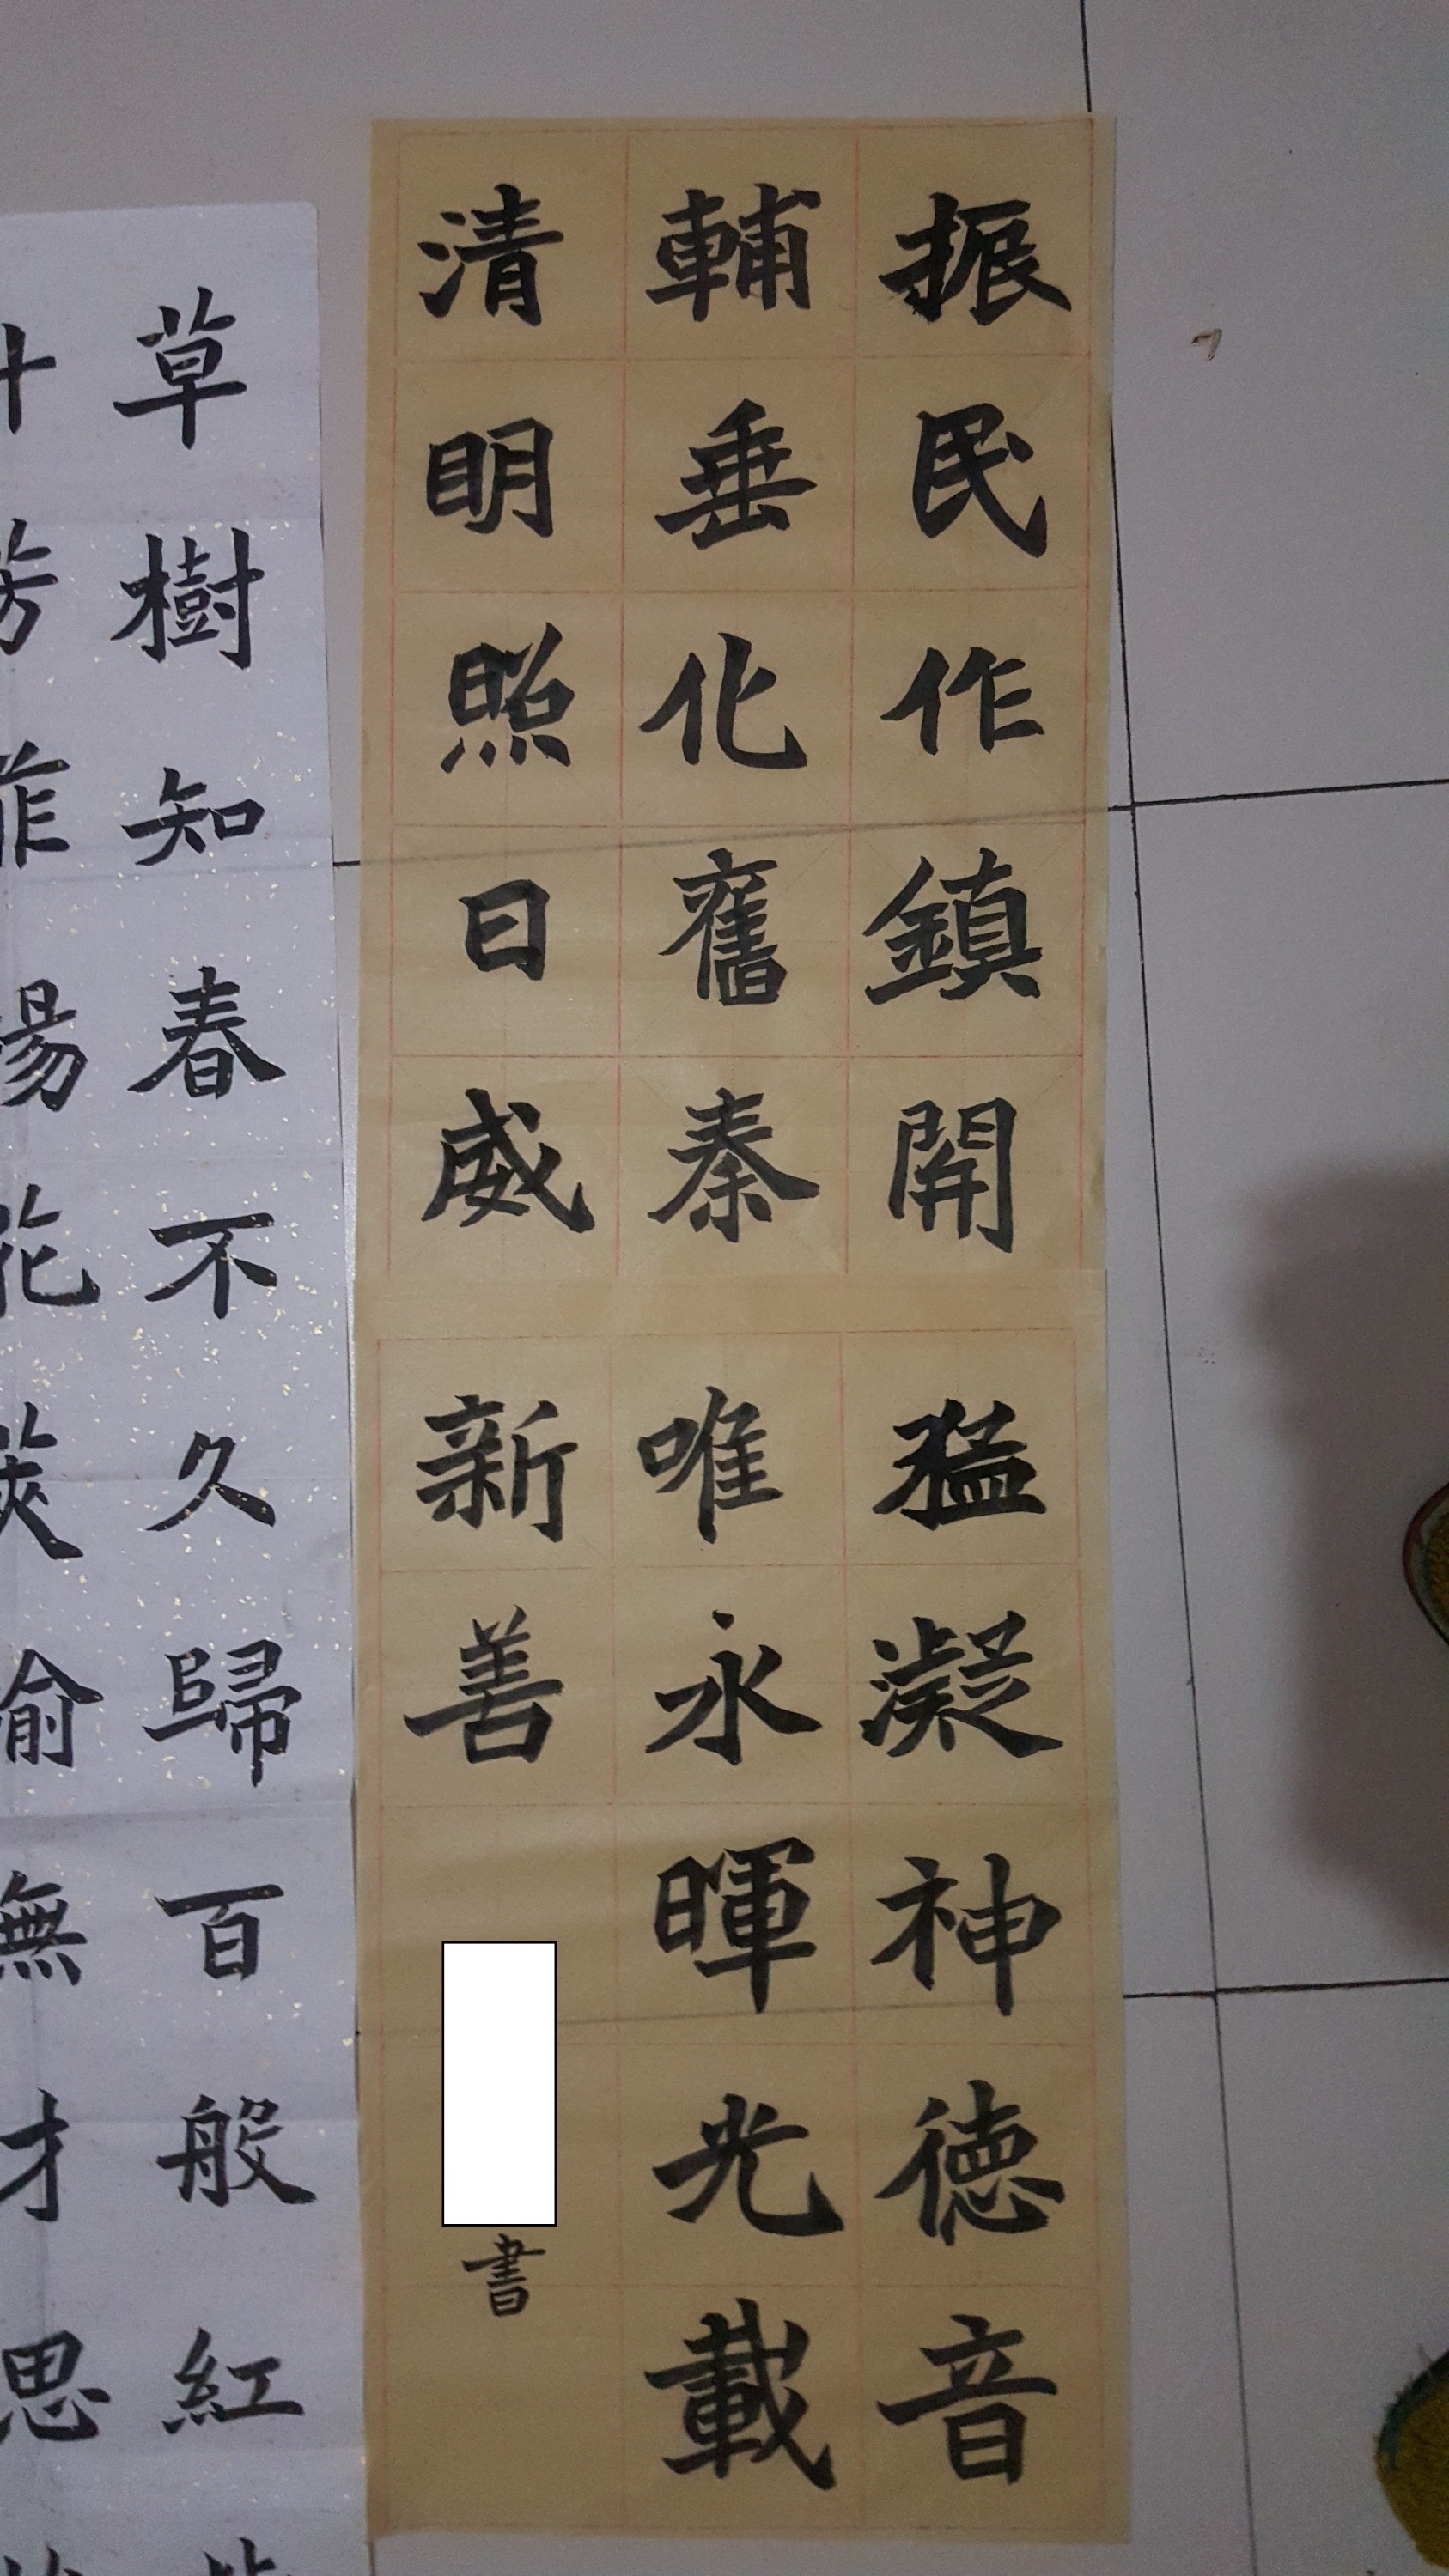 振民作鎮開猛凝神德音
輔垂化舊秦唯永暉光載
清明照日威新善
書
草樹知春不久歸百般紅
芳菲楊花莢榆無才思